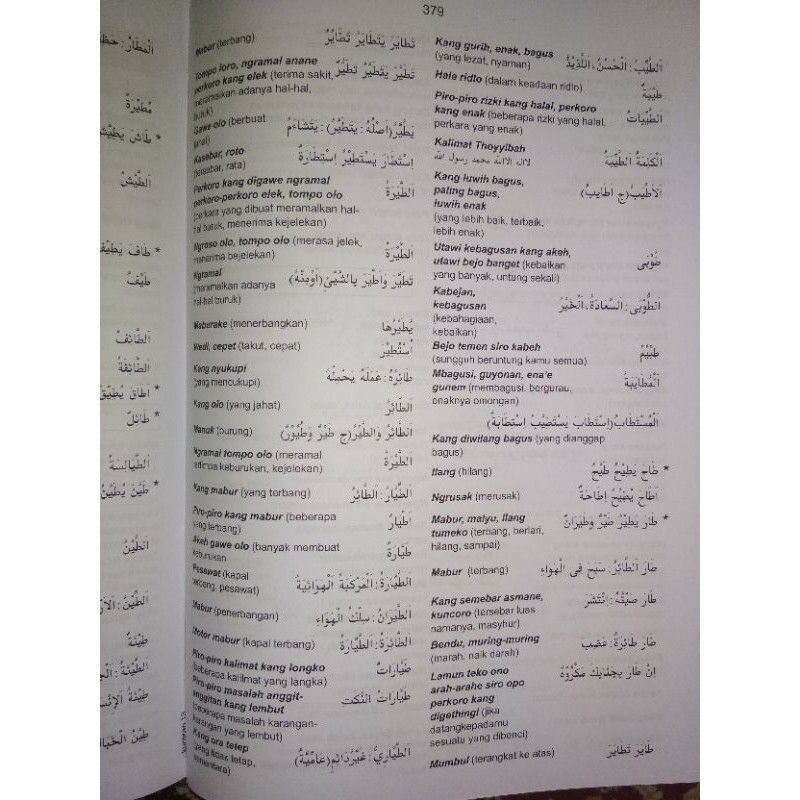 379
Kang gurih, enak, bagus
(yang lezat, nyaman) اَلطَّيِّبُ : اَلْحَسَنُ ، اَللَّذِيْذُ
Hale ridlo (dalam keadaan ridlo) طَيِّبَةٌ
Piro-piro rizki kang halal, perkoro
kang enak (beberapa rizki yang halal, اَلطَّيِّبَاتُ
perkara yang enak)
Kalimat Thoyyibah اَلْكَلِمَةُ الطَّيِّبَةُ
لااله الاالله محمد رسول الله
Kang luwih bagus,
paling bagus, اَلْاَطْيَبُ (ج اطايب)
luwih enak
(yang lebih baik, terbaik,
lebih enak)
Utawi kebagusan kang akeh,
utawi bejo banget (kebaikan طُوْبَى
yang banyak, untung sekali)
Kabejan,
kebagusan اَلطُّوْبَى : اَلسَّعَادَةُ ، اَلْخَيْرُ
(kebahagiaan,
kebaikan)
Bejo temen siro kabeh طِبْتُمْ
(sungguh beruntung kamu semua)
Mbagusi, guyonan, ena'e اَلْمُطَايَبَةُ
gunem (membagusi, bergurau,
enaknya omongan)
اَلْمُسْتَطَابُ (اِسْتَطَابَ يَسْتَطِيْبُ اِسْتِطَابَةً)
Kang diwilang bagus (yang dianggap
bagus)
Ilang (hilang) * طَاحَ يَطِيْحُ طَيْحٌ
Ngrusak (merusak) اَطَاحَ يُطِيْحُ اِطَاحَةً
Mabur, malyu, ilang * طَارَ يَطِيْرُ طَيْرٌ وَطَيَرَانٌ
tumeko (terbang, berlari,
hilang, sampai)
Mabur (terbang) طَارَ الطَّائِرُ : سَبَحَ فِى الْهَوَاءِ
Kang semebar asmane, طَارَ صِيْتُهُ : اِنْتَشَرَ
kuncoro (tersebar luas
namanya, masyhur)
Bendu, muring-muring طَارَ طَائِرُهُ : غَضِبَ
(marah, naik darah)
Lamun teko ono اِنْ طَارَ بِجِنَابِكَ مَكْرُوْهٌ
arah-arahe siro opo
perkoro kang
digethingi (jika
datangkepadamu
sesuatu yang dibenci)
Mumbul (terangkat ke atas) طَايَرَ تَطَايَرَ
Mabur (terbang) تَطَايَرَ يَتَطَايَرُ تَطَايُرٌ
Tompo loro, ngramal anane
perkoro kang elek (terima sakit, تَطَيَّرَ يَتَطَيَّرُ تَطَيُّرٌ
meramalkan adanya hal-hal,
buruk)
Gawe olo (berbuat يَطَّيَّرُ (اَصْلُهُ : يَتَطَيَّرُ) : يَتَشَاءَمُ
Kasebar, roto اِسْتَطَارَ يَسْتَطِيْرُ اِسْتِطَارَةً
(tersebar, rata)
Perkoro kang digawe ngramal
perkoro-perkoro elek, tompo olo اَلطِّيَرَةُ
(perkara yang dibuat meramalkan hal-
hal buruk, menerima kejelekan)
Ngroso olo, tompo olo (merasa jelek, اَلطِّيَرَةُ
menerima bejelekan)
Ngramal تَطَيَّرَ وَاطَّيَّرَ بِالشَّيْئِ (اَوْمِنْهُ)
(meramalkan adanya
hal-hal buruk)
Maburake (menerbangkan) يُطَيِّرُهَا
Wedi, cepet (takut, cepat) اُسْتُطِيْرَ
Kang nyukupi طَائِرُهُ : عَمَلُهُ
(yang mencukupi)
Kang olo (yang jahat) اَلطَّائِرُ
Manuk (burung) اَلطَّائِرُ وَالطَّيْرُ (ج طَيْرٌ وَطُيُوْرٌ)
Ngramal tompo olo (meramal اَلطِّيَرَةُ
kaburukan, kejelekan)
Kang mabur (yang terbang) اَلطَّيَّارُ : اَلطَّائِرُ
Piro-piro kang mabur (beberapa اَطْيَارٌ
yang terbang)
Akeh gawe olo (banyak membuat طَيَّارَةٌ
keburukan
Pesawat (kapal اَلطَّيَّارَةُ : اَلْمَرْكَبَةُ الْهَوَائِيَّةُ
pesawat)
Mabur (penerbangan) اَلطَّيَرَانُ : سِلْكُ الْهَوَاءِ
Motor mabur (kapal terbang) اَلطَّائِرَةُ : اَلطَّيَّارَةُ
Piro-piro kalimat kang longko طَيَّارَاتٌ
(beberapa kalilmat yang langka)
Piro-piro masalah anggit-
anggitan kang lembut طَيَّارَاتُ النُّكَتِ
(beberapa masalah karangan-
karangan yang lembut)
Kang ora tetep اَلطَّيَّارِيُّ : غَيْرُدَائِمٍ (عَامِيَّةٌ)
(yang tidak tetap,
sementara)
مُطَيَّرَةٌ
اَلطَّيْشُ
طَيْفٌ
اَلطَّائِفُ
اَلطَّائِفَةُ
* طَائِلٌ
اَلطَّيَالِسَةُ
اَلطِّيْنُ
طِيْنَةٌ